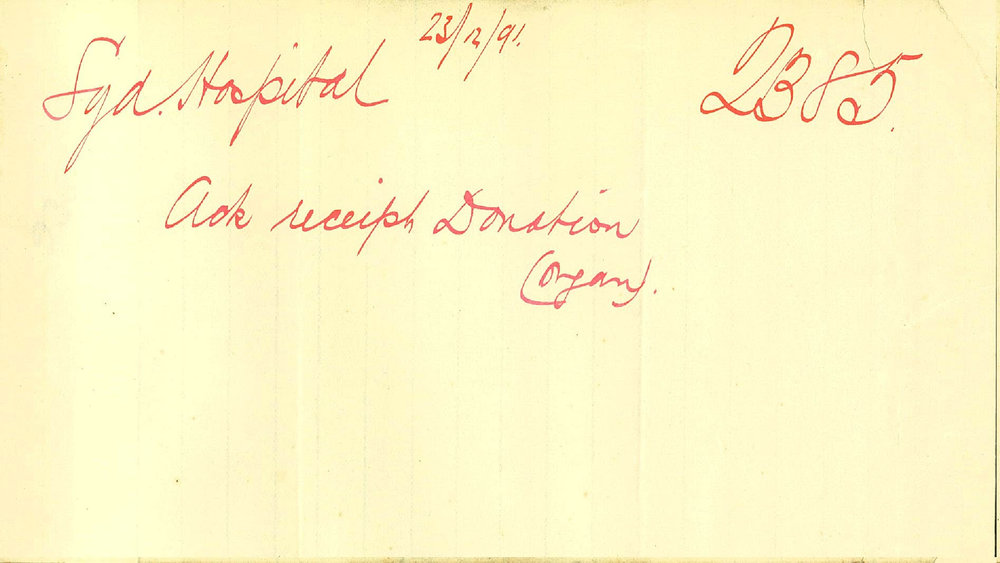 23/12/91.
Syd. Hospital
2385.
Ack receipt Donation
(Organ).